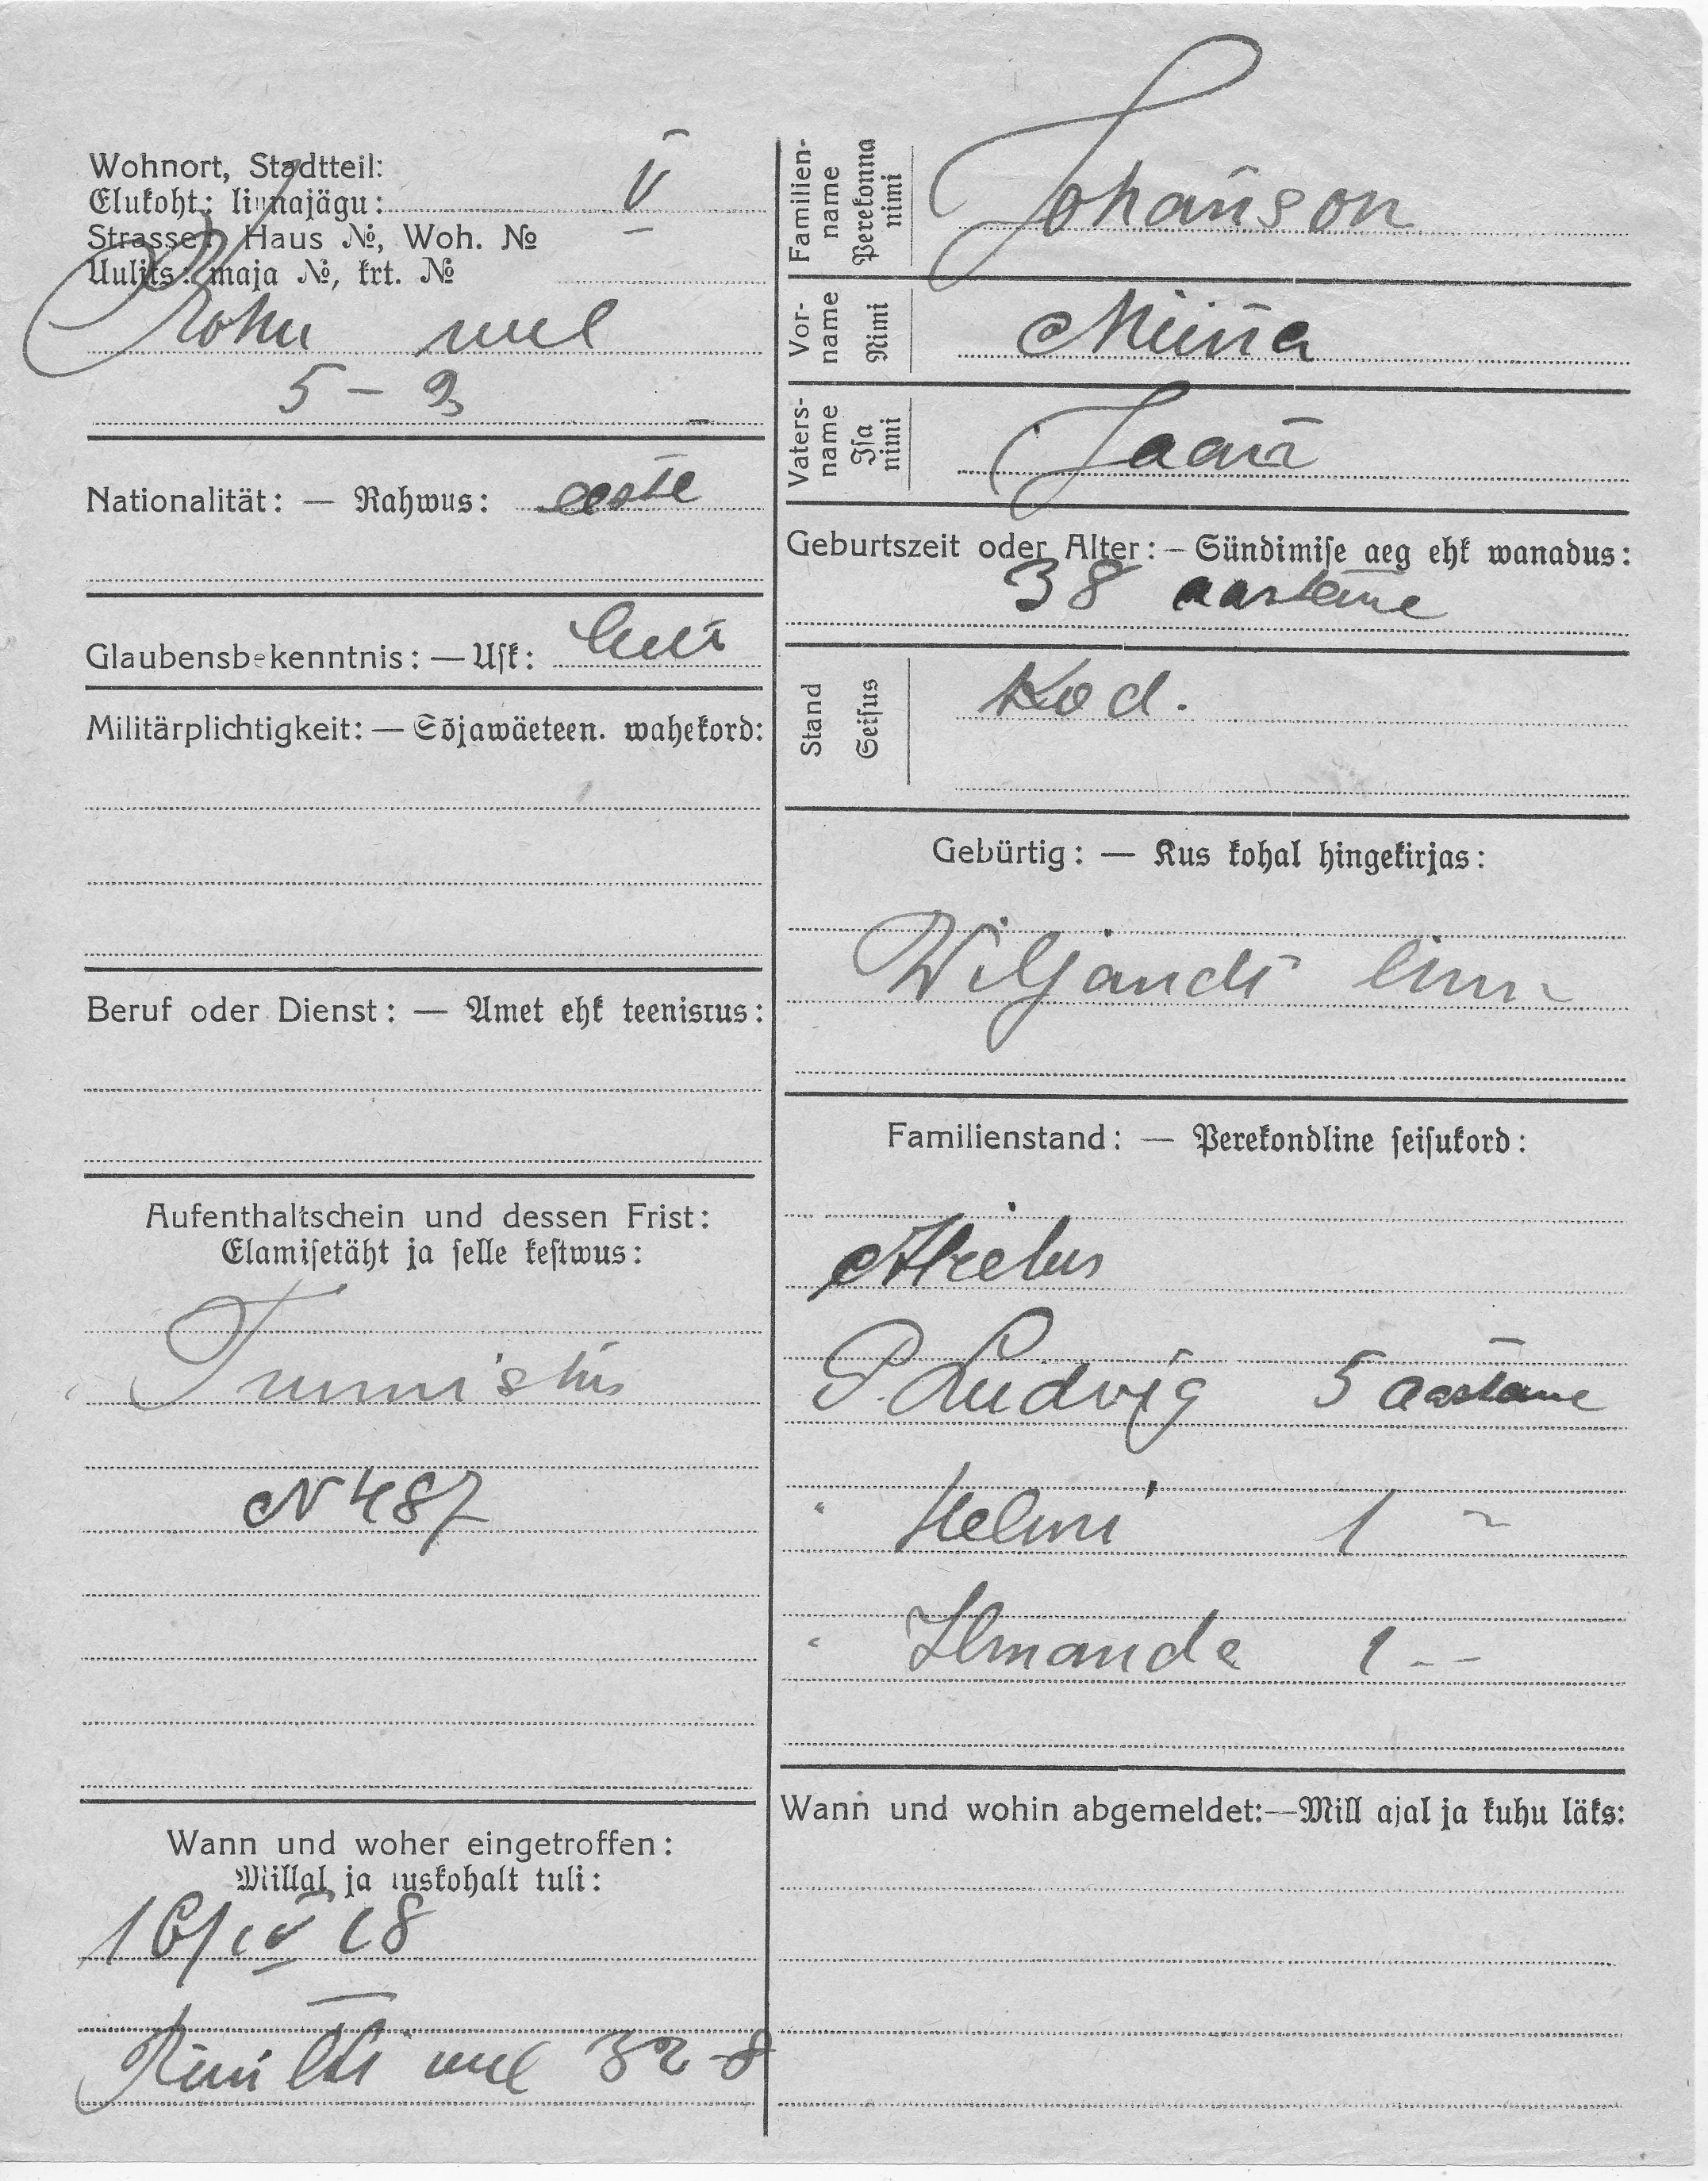 Wohnort, Stadtteil:
Elukoht: linnajägu: V
Strasse: Haus №, Woh. №
Uulits: maja №, krt. №
Rohu uul
5 – 3
Nationalität: — Rahwus: eesti
Glaubensbekenntnis: — Usk: luth
Militärplichtigkeit: — Sõjawäeteen. wahekord:
Beruf oder Dienst: — Amet ehk teenistus:
Aufenthaltschein und dessen Frist:
Elamisetäht ja selle kestwus:
Tunnistus
N 487
Wann und woher eingetroffen:
Millal ja kuskohalt tuli:
16/IV 18
uul 32-8
Familien-
name
Perekonna
nimi
Johanson
Vor-
name
Nimi
Miina
Vaters-
name
Isa
nimi
Jaan
Geburtszeit oder Alter: – Sündimise aeg ehk wanadus:
38 aastane
Stand
Seisus
Kod.
Gebürtig: — Kus kohal hingekirjas:
Wiljandi linn
Familienstand: — Perekondline seisukord:
Abielus
P. Ludvig 5 aastane
" Helmi 1 "
" Ilmanda 1 --
Wann und wohin abgemeldet:—Mill ajal ja kuhu läks: